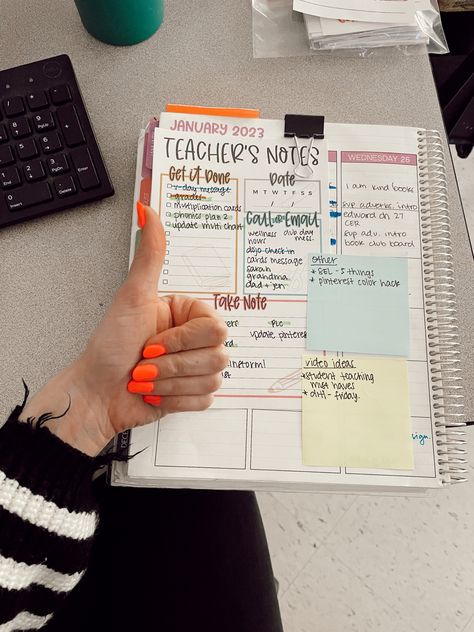 JANUARY 2023
TEACHER'S NOTES
Get it Done
v-day message
grades
multiplication cards
phonics plan 2
update multi chart
Date
M T W T F S S
Call or Email
wellness club day
hours mess.
dojo check in
cards message
sarah
grandma
dad + jen
Take Note
update pinterest
WEDNESDAY 25
I am kind book
sup advertise
edward ch 27
CER
sup adv. intro
book club board
other
* SEL - 5 things
* pinterest color hack
video ideas
* student teaching
must haves
* ditl - friday.